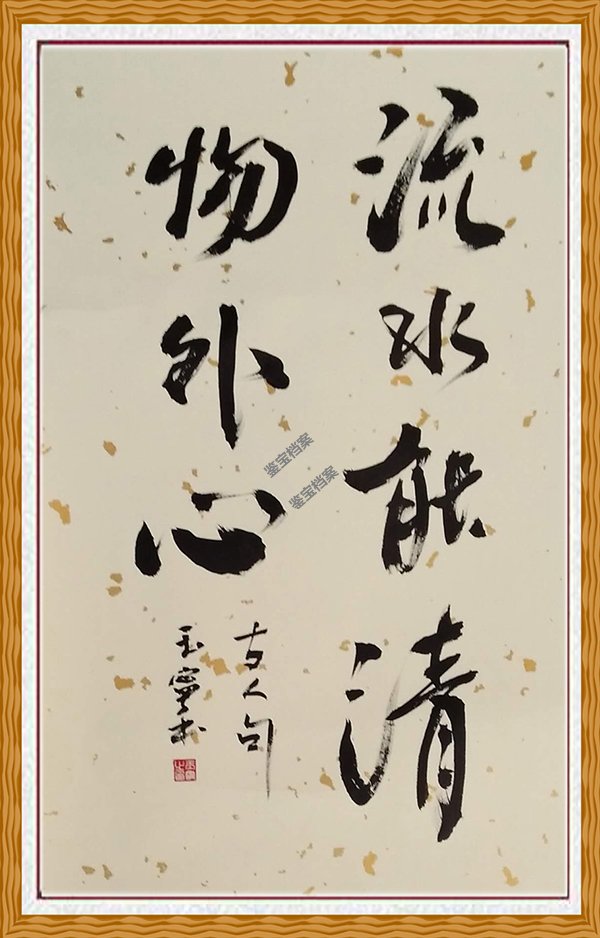 流水能清
物外心
古人句
玉书
鉴宝档案
鉴宝档案